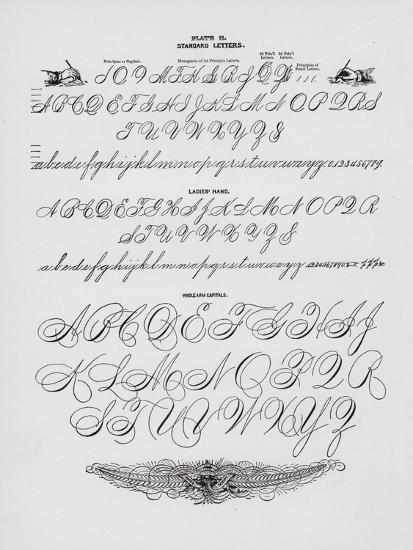 PLATE II.
STANDARD LETTERS.
Principles of Capitals. Monograms of 1st Principle Letters. 2d Prin'l Letters. 3d Prin'l Letters. Principles of Small Letters.
A B C D E F G H I J K L M N O P Q R S
T U V W X Y Z &
a b c d e f g h i j k l m n o p q r s t u v w x y z 0 1 2 3 4 5 6 7 8 9
LADIES' HAND.
A B C D E F G H I J K L M N O P Q R
S T U V W X Y Z &
a b c d e f g h i j k l m n o p q r s t u v w x y z 1 2 3 4 5 6 7 8 9 0
WHOLEARM CAPITALS.
A B C D E F G H I J
K L M N O P Q R
S T U V W X Y Z